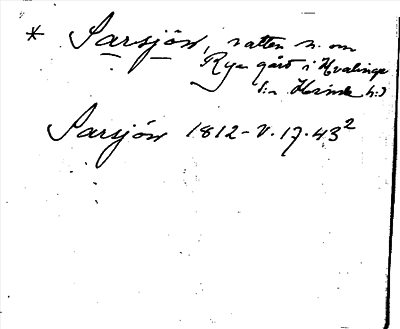 * Sarsjön, vatten n. om
Rya gård i Hvalinge
s:n Himle h:d
Sarsjön 1812-V.17.43²